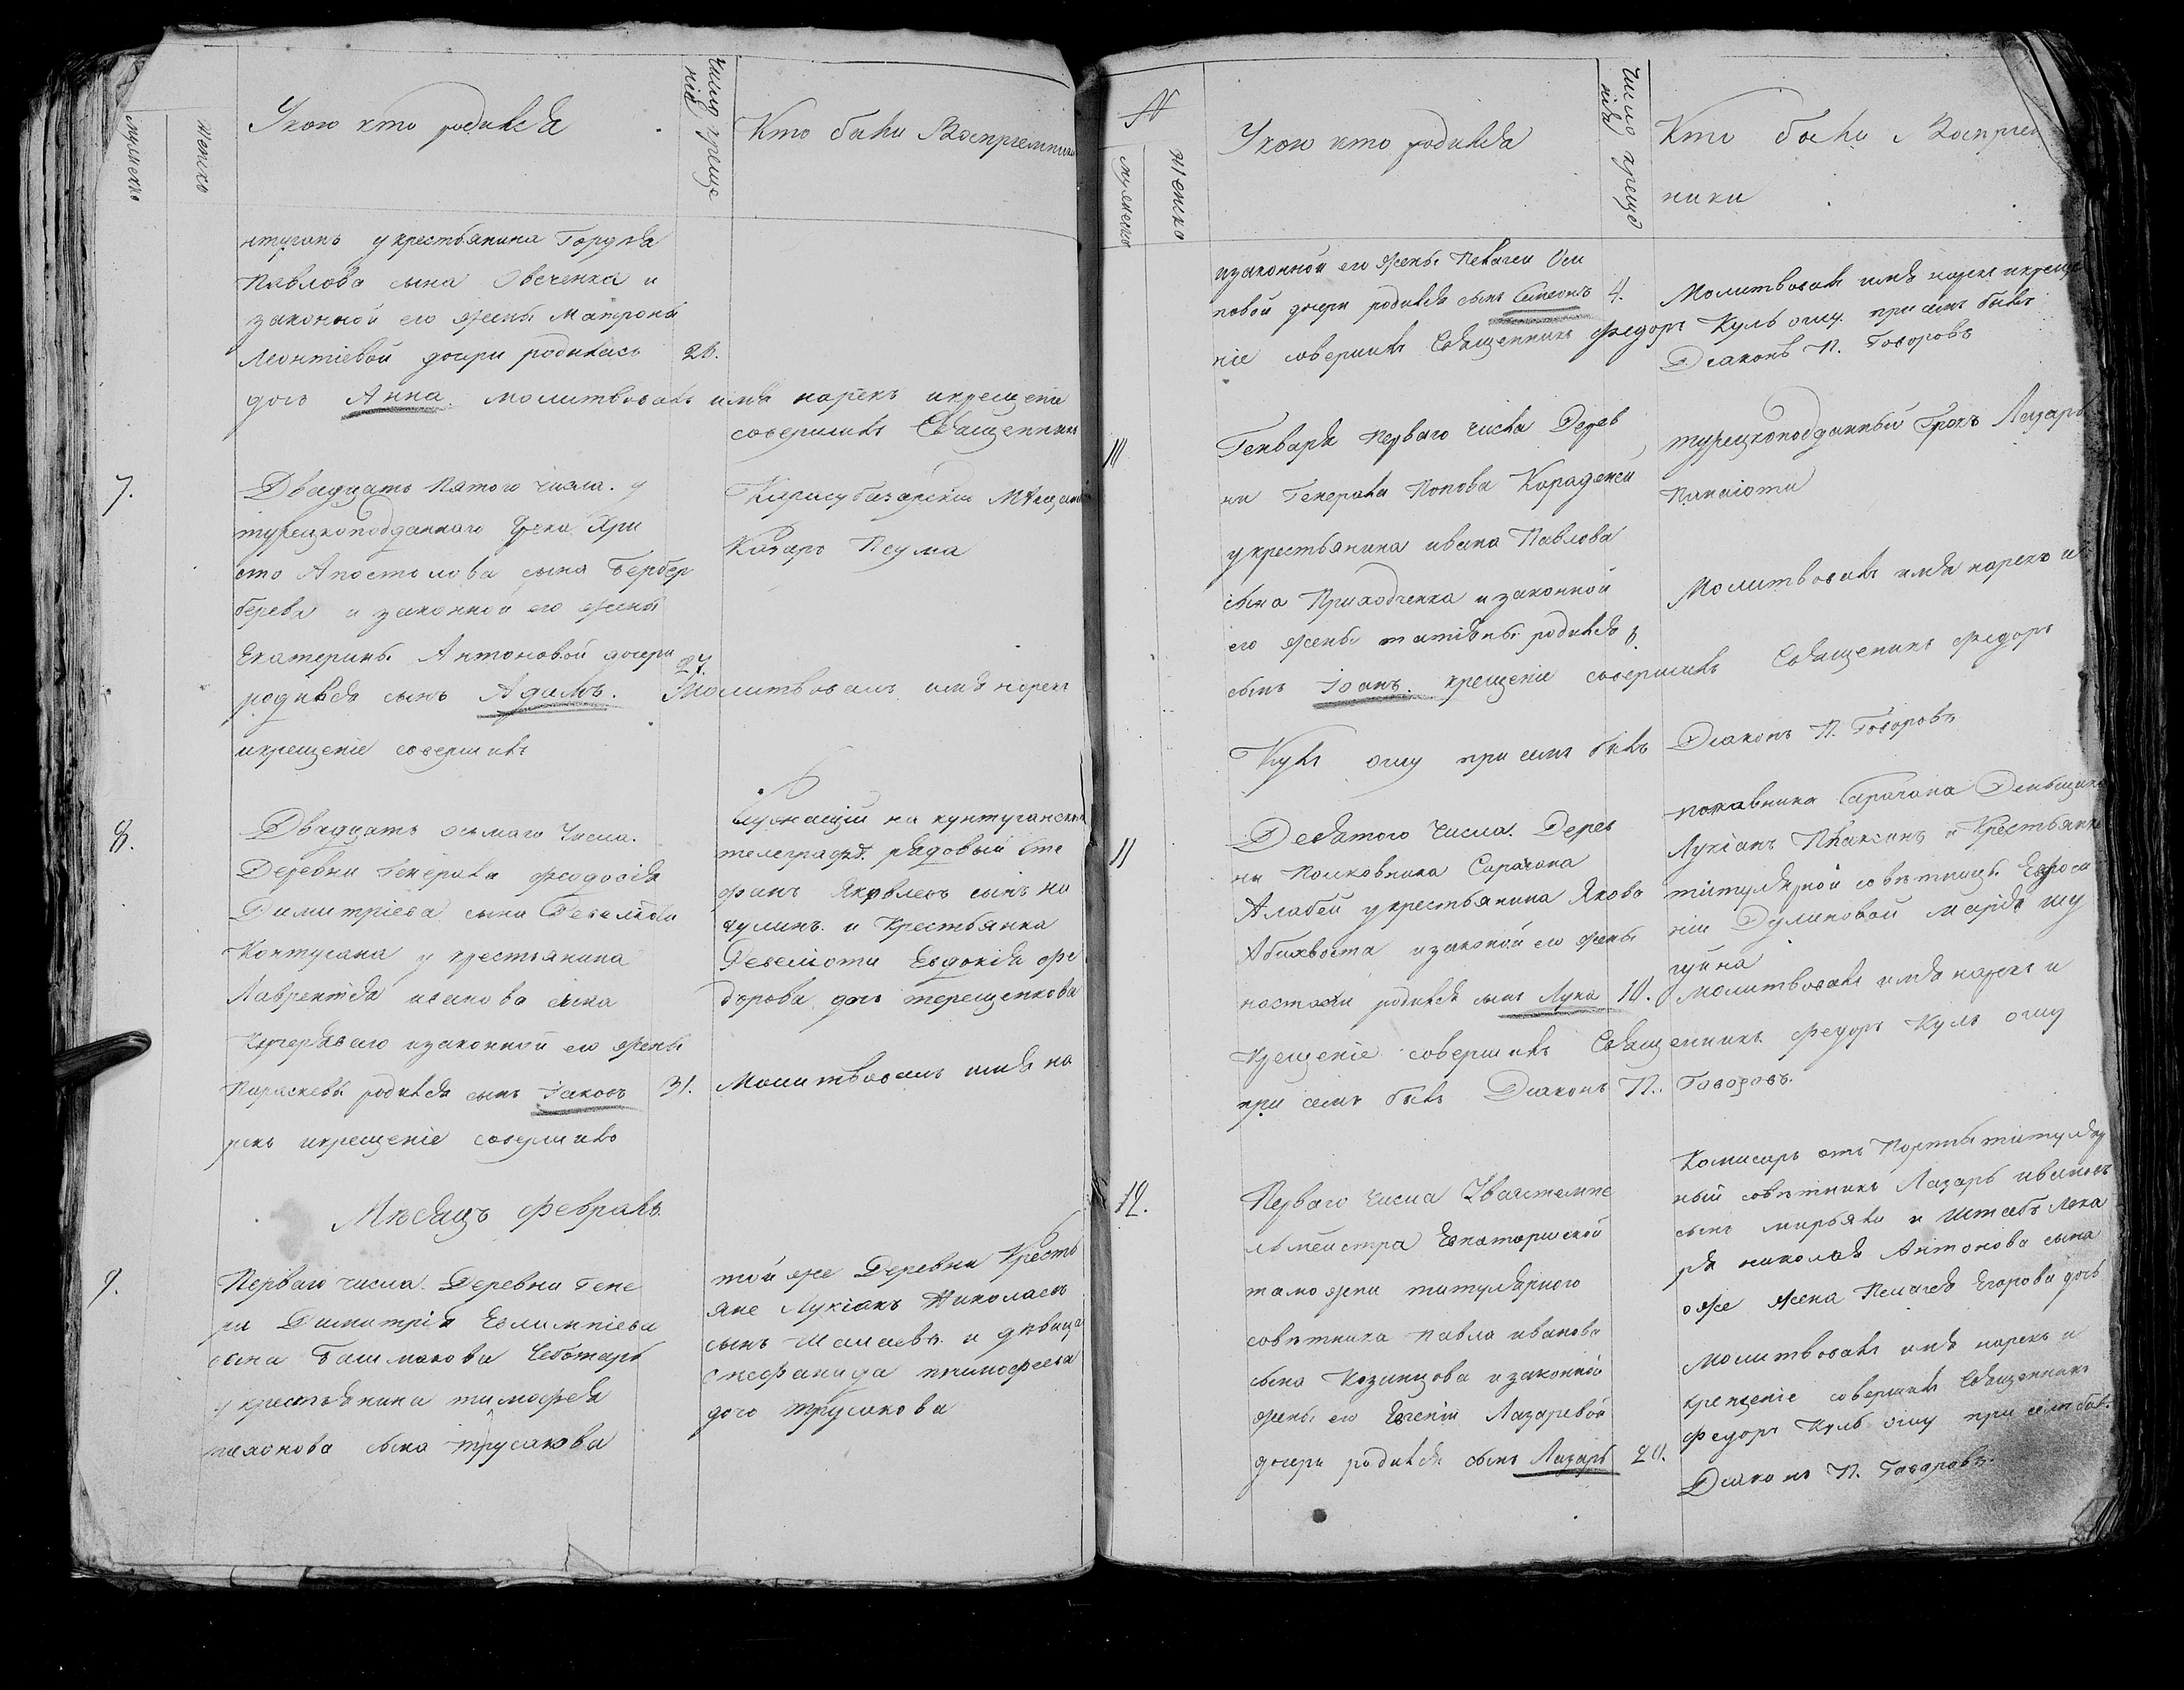 мужеско
женско
У кого кто родился
Число креще
нія
Кто были Воспріемники
нтуганъ у крестьянина Гордѣя
Павлова сына Овсченка и
законной его жены Матроны
Леонтіевой дочери родилась 28.
дочь Анна. молитвовалъ имя нарекъ и крещеніе
совершилъ Священникъ
7.
Двадцать пятого числа. у
турецкоподданнаго Грека Хри
сто Апостолова сына Бербер
берева и законной его жены
Екатерины Антоновой дочери
родился сынъ Адамъ. 27. Молитвовалъ имя нарекъ
и крещеніе совершилъ
Карасубазарскій Мѣщанинъ
8.
Двадцать осьмаго Числа.
Деревни Генерала Феодосія
Димитріева сына Ревеліоти
Контугана у крестьянина
Лаврентія иванова сына
Кучеряваго и законной его жены
Параскевы родился сынъ Іаковъ 31. Молитвовалъ имя на
рекъ и крещеніе совершилъ
Служащій на кунтуганском
телеграфѣ рядовый Сте
фанъ Яковлевъ сынъ
и Крестьянка
Ревеліоти Евдокія Фе
дорова дочь терещенкова
Мѣсяцъ февраль.
9.
Перваго числа. Деревни Гене
рала Димитрія Евлимпіева
сына Башмакова Чеботаръ
у крестьянина тимофея
сына трусакова
той же Деревни Кресть
яне Лукіанъ Николаевъ
сынъ и дѣвица
Стефанида тимофеева
дочь трусакова
№
мужеско
женско
У кого кто родился
Число креще
нія
Кто были Воспріем
ники
и законной его жены Пелагеи Оси
повой дочери родился сынъ Симеонъ 4. Молитвовалъ имя нарекъ и креще
ніе совершилъ Священникъ Федоръ Куль огму. при семъ былъ
Діаконъ П. Говоровъ
10
Генваря перваго числа Дерев
ни Генерала Попова Караджи
у крестьянина ивана Павлова
сына Приходченка и законной
его жены татіяны родился 8.
сынъ Іоанъ. крещеніе совершилъ Священикъ Федоръ
Куль огму при семъ былъ Діаконъ П. Говоровъ
турецкоподданный Грекъ Лазарь
Панаіоти
Молитвовалъ имя нарекъ и
11
Девятого числа. Дерев
ни Полковника Сарачана
Алабей у крестьянина Якова
и законной его жены
настасіи родился сынъ Лука 10. молитвовалъ имя нарекъ и
Крещеніе совершилъ Священникъ Федоръ Куль огму
при семъ былъ Діаконъ П. Говоровъ.
полковника Сарачана Деньщикъ
Лукіанъ и Крестьянка
титулярной совѣтницы Евфроси
ніи Дулиповой марія шу
гуина
12.
Перваго числа
лемейстра Евпаторійской
таможни титулярного
совѣтника Павла иванова
сына Казанцова и законной
жены его Евгеніи Лазаревой
дочери родился сынъ Лазарь 20.
Комисаръ отъ Порты титуляр
ный совѣтникъ Лазарь ивановъ
сынъ и Штабъ Лека
ря николая Антонова сына
жена Пелагея Егорова дочь
молитвовалъ имя нарекъ и
крещеніе совершилъ Священникъ
Федоръ Куль огму при семъ былъ
Діаконъ П. Говоровъ.